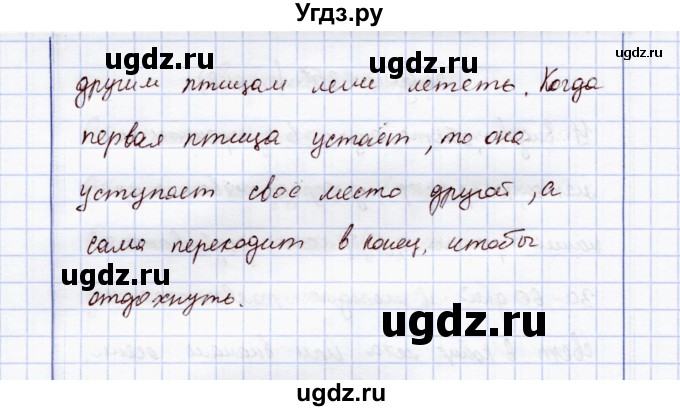 Угдз.ру
ugdz.ru ugdz.ru ugdz.ru
другим птицам легче лететь. Когда
первая птица устаёт, то она
ugdz.ru ugdz.ru
уступает своё место другой, а
сама переходит в конец, чтобы
ugdz.ru
отдохнуть.
ugdz.ru ugdz.ru
ugdz.ru